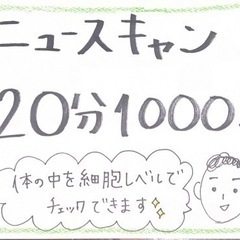 ニュースキャン
20分1000
体の中を細胞レベルで
チェックできます